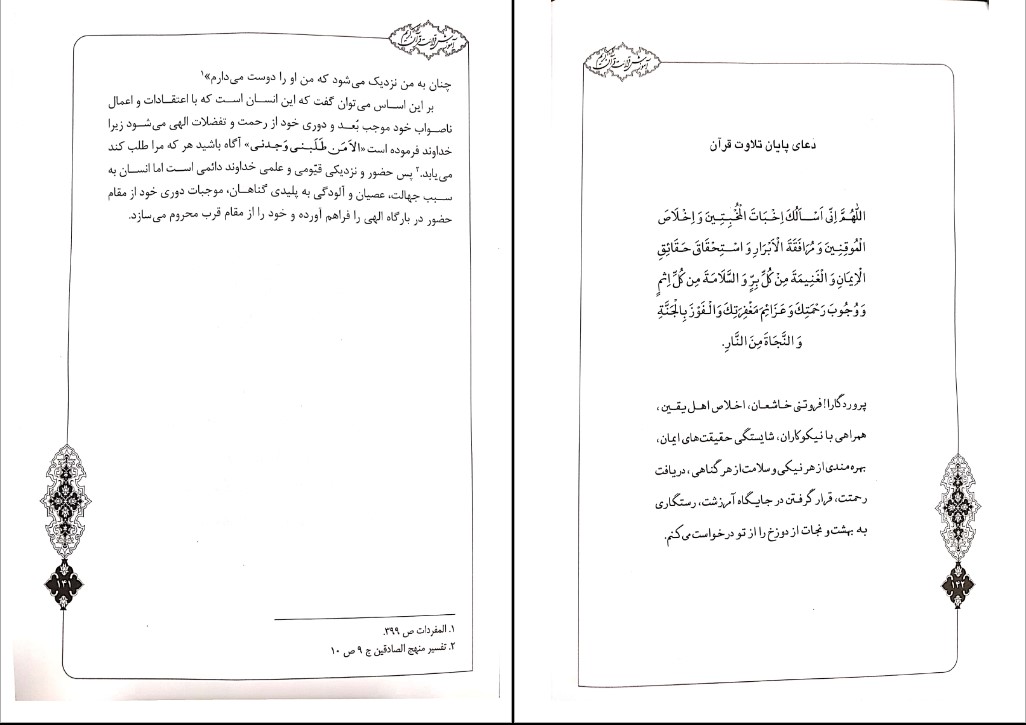 آموزش قرائت قرآن کریم
چنان به من نزدیک می‌شود که من او را دوست می‌دارم»۱
بر این اساس می‌توان گفت که این انسان است که با اعتقادات و اعمال
ناصواب خود موجب بُعد و دوری خود از رحمت و تفضلات الهی می‌شود زیرا
خداوند فرموده است «الاَ مَن طَلَبنی وَجدنی» آگاه باشید هر که مرا طلب کند
می‌یابد.۲ پس حضور و نزدیکی قیّومی و علمی خداوند دائمی است اما انسان به
سبب جهالت، عصیان و آلودگی به پلیدی گناهان، موجبات دوری خود از مقام
حضور در بارگاه الهی را فراهم آورده و خود را از مقام قرب محروم می‌سازد.
۱۴۱
۱. المفردات ص ۳۹۹.
۲. تفسیر منهج الصادقین ج ۹ ص ۱۰
آموزش قرائت قرآن کریم
دعای پایان تلاوت قرآن
اَللّٰهُمَّ اِنّی اَسْـاَلُكَ اِخْبَاتَ الْمُخْبِتِـینَ وَ اِخْلَاصَ
الْمُوقِنِـینَ وَ مُرَافَقَةَ الْاَبْرَارِ وَ اسْتِحْقَاقَ حَقَائِقِ
الْاِیمَانِ وَ الْغَنِیمَةَ مِنْ کُلِّ بِرٍّ وَ السَّلَامَةَ مِن کُلِّ اِثْمٍ
وَ وُجُوبَ رَحْمَتِكَ وَ عَزَائِمَ مَغْفِرَتِكَ وَ الْفَوْزَ بِالْجَنَّةِ
وَ النَّجَاةَ مِنَ النَّارِ.
پروردگارا! فروتنی خاشعان، اخلاص اهل یقین،
همراهی با نیکوکاران، شایستگی حقیقت‌های ایمان،
بهره‌مندی از هر نیکی و سلامت از هر گناهی، دریافت
رحمتت، قرار گرفتن در جایگاه آمرزشت، رستگاری
به بهشت و نجات از دوزخ را از تو درخواست می‌کنم.
۱۴۲